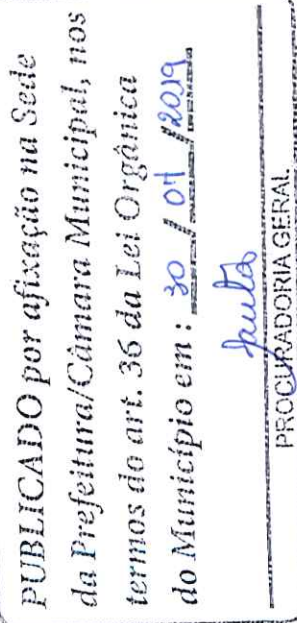 PUBLICADO por afixação na Sede
da Prefeitura/Câmara Municipal, nos
termos do art. 36 da Lei Orgânica
do Município em: 30 / 07 / 2019
PROCURADORIA GERAL